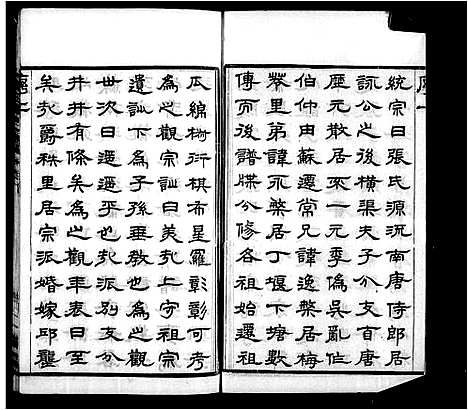 統宗曰張氏源流南唐侍郎居
詠公之後橫渠夫子公支百唐
歷元散居來一元季偽吳亂仁
伯仲由蘇遷常兄諱逸槃居梅
里弟諱元槃居丁堰下塘數
傳而後譜牒公修各祖始遷祖
瓜綿椒衍棋布星羅彰彰可考
為之觀宗訓曰美哉上守祖宗
遺訓下為子孫垂教也為之觀
世次曰遷遷乎也哉派別支分
井井有條矣為之觀年表曰至
矣哉爵秩里居宗派婚嫁邱壟